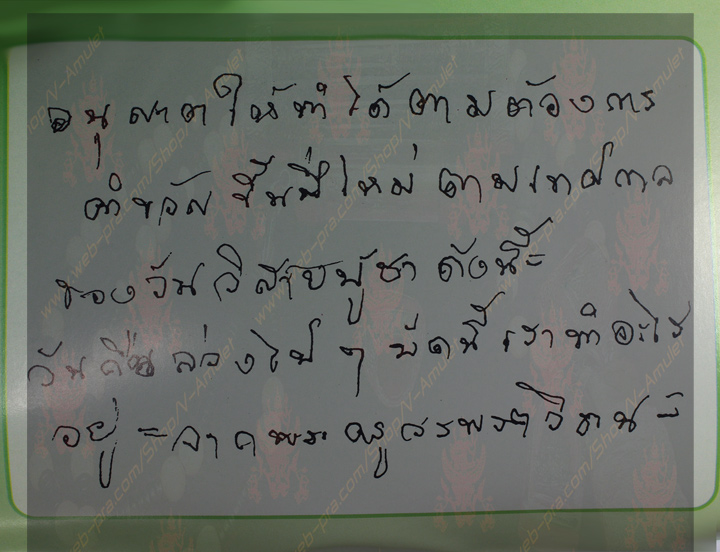 อนุญาตให้ทำได้ตามต้องการ
คำขวัญขึ้นปีใหม่ตามเทศกาล
ของวันวิสาขบูชา ดังนี้
วันคืนล่วงไป ๆ บัดนี้เราทำอะไร
อยู่ = จากพระครู
www.web-pra.com/Shop/V-Amulet